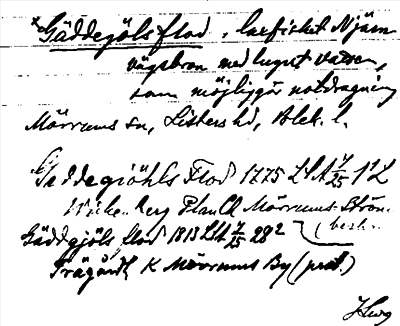 ×Gäddegölsflod, laxfisket Njäm
vägsbron med lugnt vatten,
som möjliggör notdragning
Mörrums sn, Listers hd, Blek. l.
Gaddegiöhls Flod 1775 LSA 7/25 1¹ L
Plan Ch Mörrums Ström
Gäddgjöls flod 1813 LSA 7/25 28² (beskr.
Trägårdh K Mörrums By (prot.)